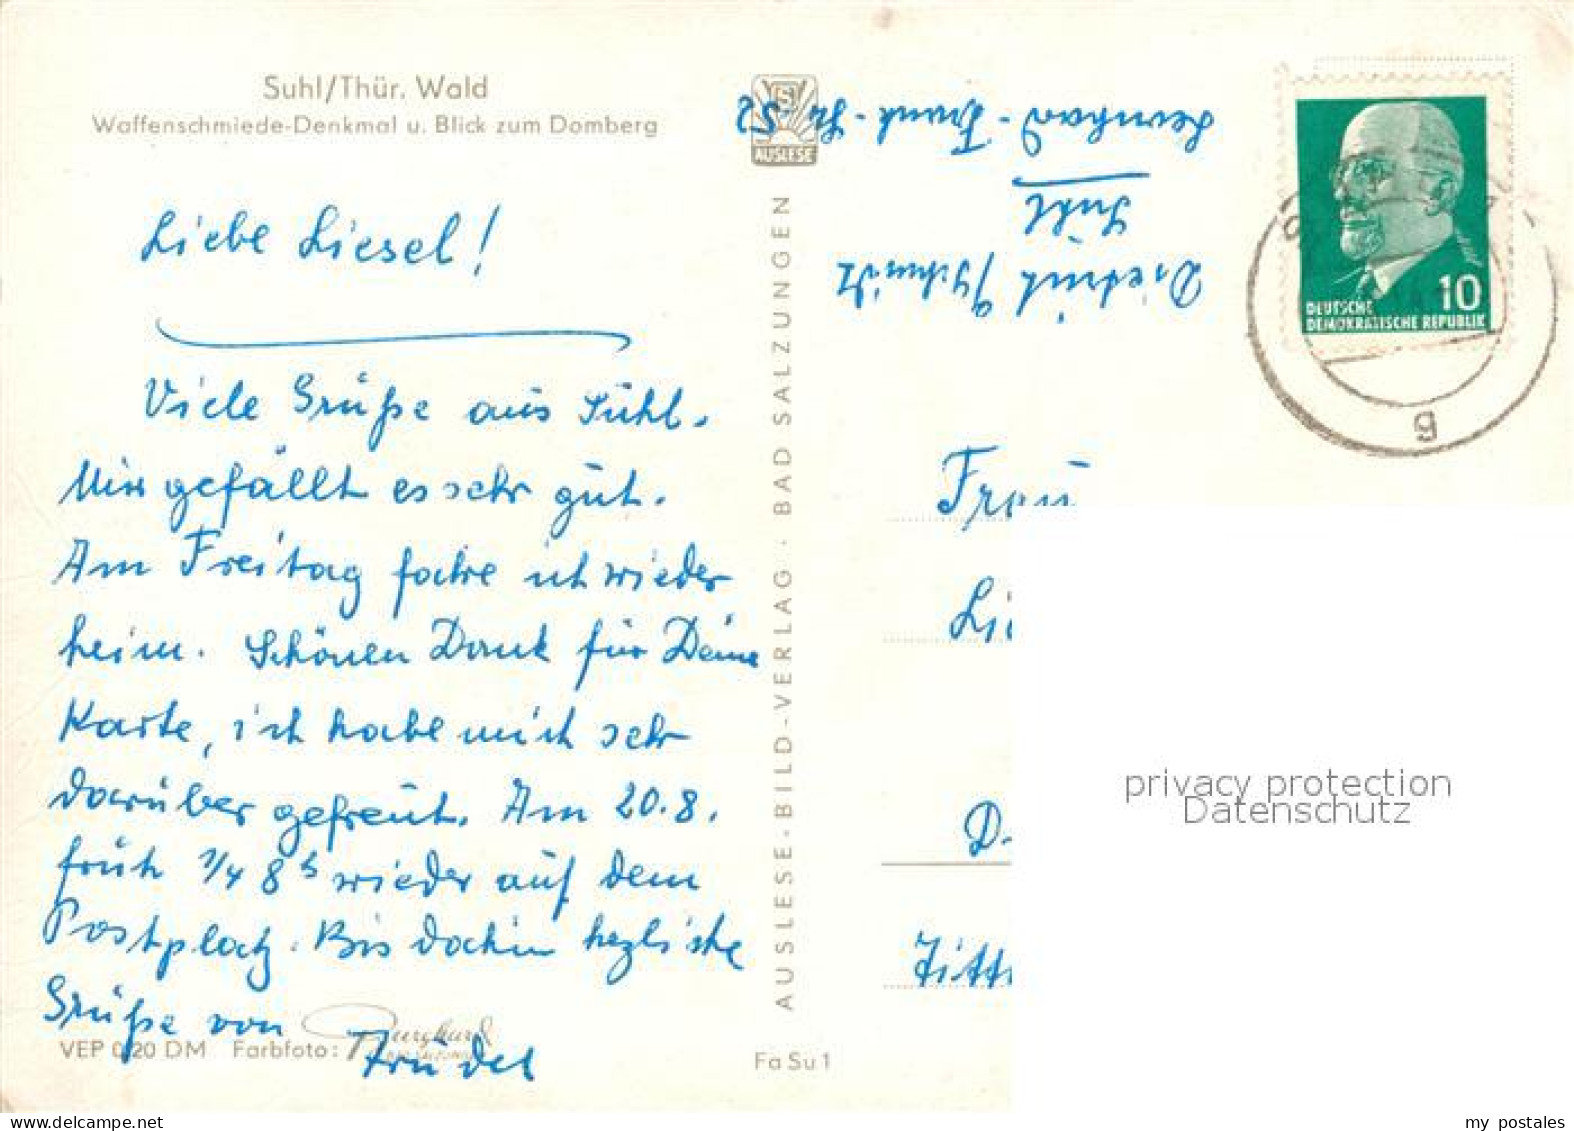 Suhl/Thür. Wald
Waffenschmiede-Denkmal u. Blick zum Domberg
Liebe Liesel!
Viele Grüße aus Suhl.
Mir gefällt es sehr gut.
Am Freitag fahre ich wieder
heim. Schönen Dank für Deine
Karte, ich habe mich sehr
darüber gefreut. Am 20.8.
früh 1/4 8 h wieder auf dem
Postplatz. Bis dahin herzliche
Grüße von
Trudel
VEP 0,20 DM Farbfoto:
Fa Su 1
AUSLESE-BILD-VERLAG · BAD SALZUNGEN
AUSLESE
Suhl
Leonhard-Frank-Str 52
10
DEUTSCHE
DEMOKRATISCHE REPUBLIK
g
Frau
privacy protection
Datenschutz
delcampe.net
my postales